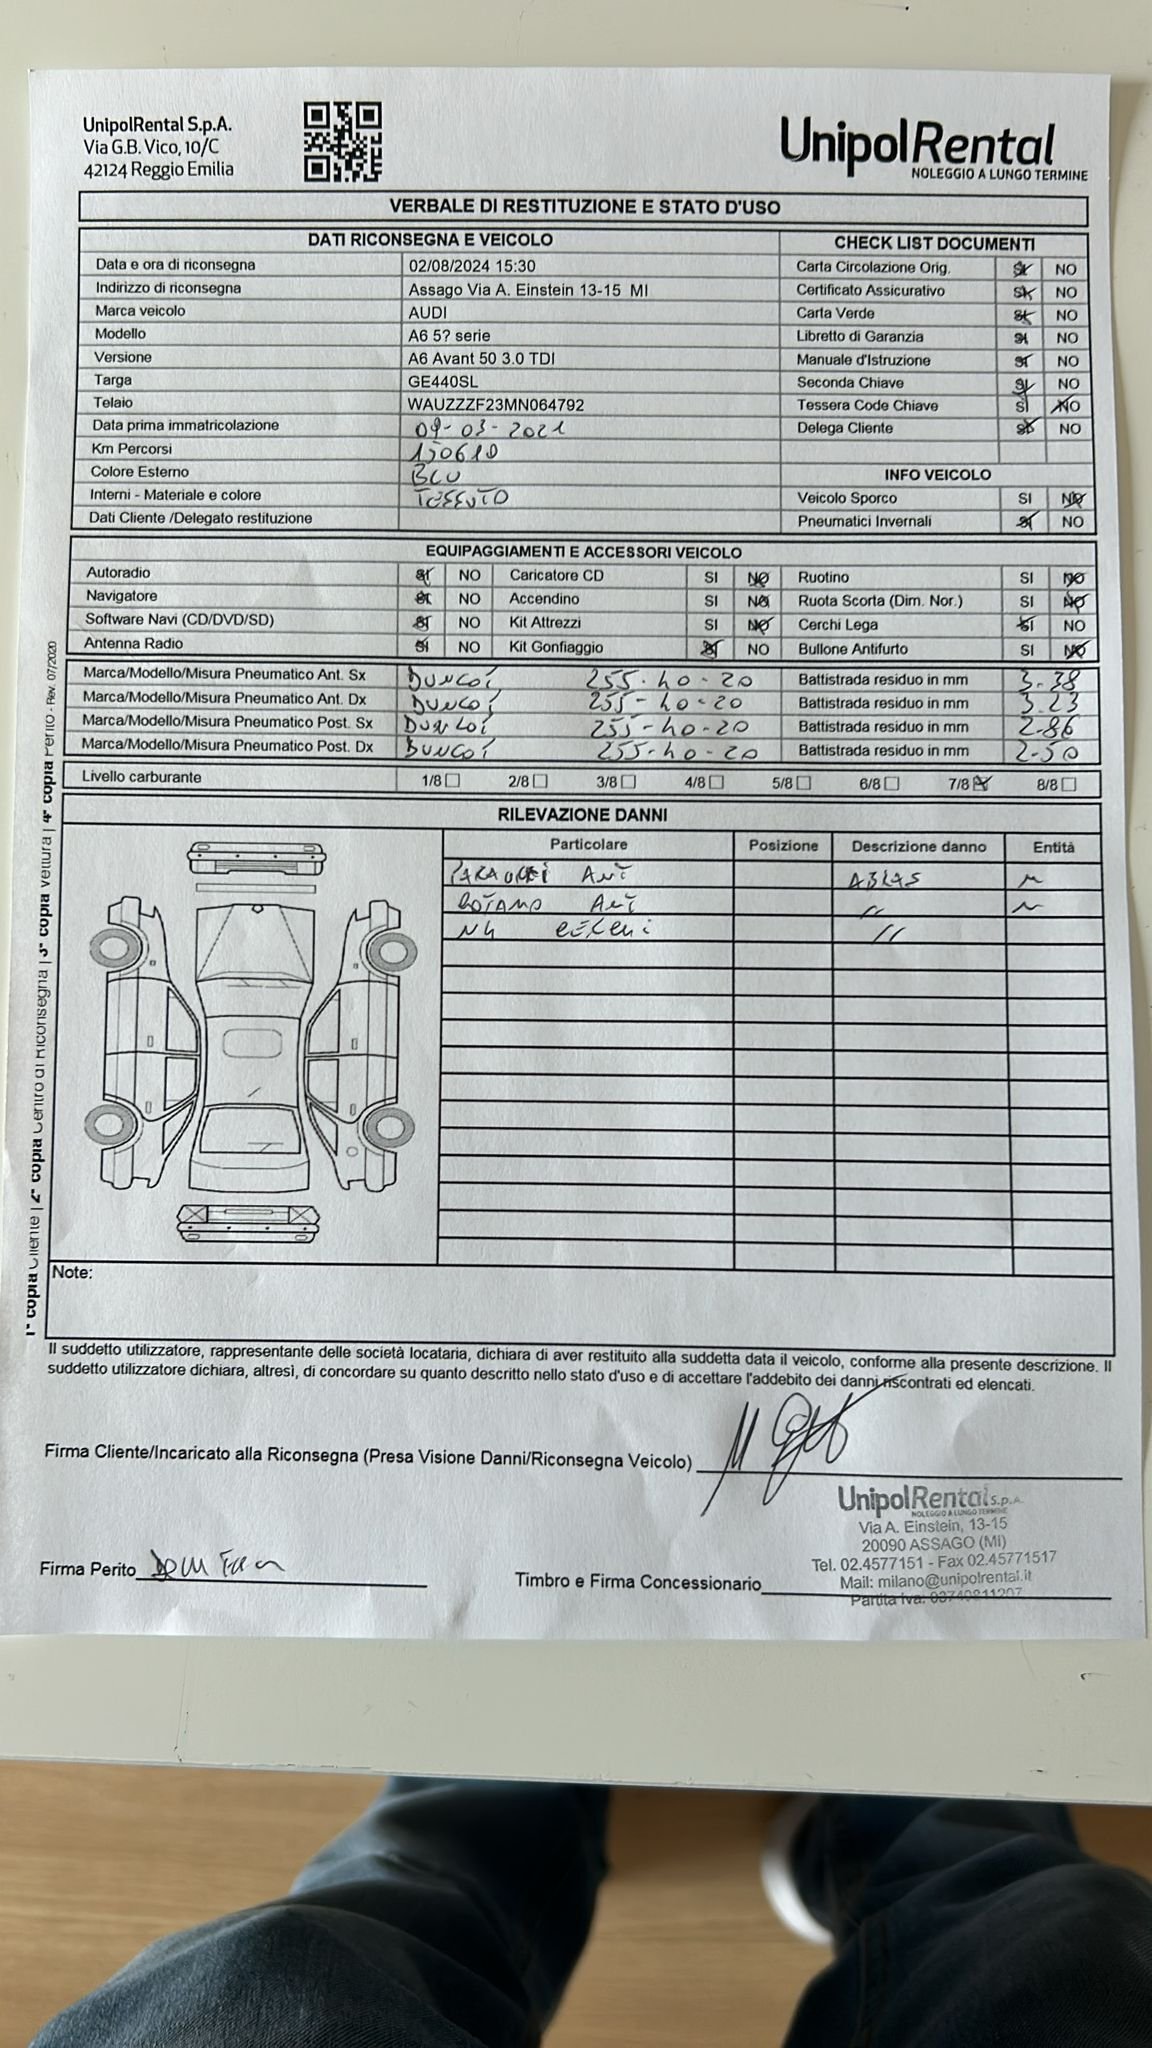 UnipolRental S.p.A.
Via G.B. Vico, 10/C
42124 Reggio Emilia
UnipolRental
NOLEGGIO A LUNGO TERMINE
VERBALE DI RESTITUZIONE E STATO D'USO
DATI RICONSEGNA E VEICOLO
CHECK LIST DOCUMENTI
Data e ora di riconsegna 02/08/2024 15:30 Carta Circolazione Orig. SI NO
Indirizzo di riconsegna Assago Via A. Einstein 13-15 MI Certificato Assicurativo SI NO
Marca veicolo AUDI Carta Verde SI NO
Modello A6 5? serie Libretto di Garanzia SI NO
Versione A6 Avant 50 3.0 TDI Manuale d'Istruzione SI NO
Targa GE440SL Seconda Chiave SI NO
Telaio WAUZZZF23MN064792 Tessera Code Chiave SI NO
Data prima immatricolazione 09-03-2021 Delega Cliente SI NO
Km Percorsi 150610
Colore Esterno BLU INFO VEICOLO
Interni - Materiale e colore TESSUTO Veicolo Sporco SI NO
Dati Cliente /Delegato restituzione Pneumatici Invernali SI NO
EQUIPAGGIAMENTI E ACCESSORI VEICOLO
Autoradio SI NO Caricatore CD SI NO Ruotino SI NO
Navigatore SI NO Accendino SI NO Ruota Scorta (Dim. Nor.) SI NO
Software Navi (CD/DVD/SD) SI NO Kit Attrezzi SI NO Cerchi Lega SI NO
Antenna Radio SI NO Kit Gonfiaggio SI NO Bullone Antifurto SI NO
Marca/Modello/Misura Pneumatico Ant. Sx 255-40-20 Battistrada residuo in mm 3.38
Marca/Modello/Misura Pneumatico Ant. Dx 255-40-20 Battistrada residuo in mm 3.23
Marca/Modello/Misura Pneumatico Post. Sx 255-40-20 Battistrada residuo in mm 2.86
Marca/Modello/Misura Pneumatico Post. Dx 255-40-20 Battistrada residuo in mm 2-50
Livello carburante 1/8 2/8 3/8 4/8 5/8 6/8 7/8 8/8
RILEVAZIONE DANNI
Particolare Posizione Descrizione danno Entità
PARAURTI ANT ABRAS
ANT "
N4 CERCHI "
Note:
Il suddetto utilizzatore, rappresentante delle società locataria, dichiara di aver restituito alla suddetta data il veicolo, conforme alla presente descrizione. Il
suddetto utilizzatore dichiara, altresì, di concordare su quanto descritto nello stato d'uso e di accettare l'addebito dei danni riscontrati ed elencati.
Firma Cliente/Incaricato alla Riconsegna (Presa Visione Danni/Riconsegna Veicolo)
UnipolRental S.p.A.
NOLEGGIO A LUNGO TERMINE
Via A. Einstein, 13-15
20090 ASSAGO (MI)
Tel. 02.4577151 - Fax 02.45771517
Mail: milano@unipolrental.it
Partita Iva: 03740811207
Firma Perito
Timbro e Firma Concessionario
1ª copia Cliente | 2ª copia Centro di Riconsegna | 3ª copia Vettura | 4ª copia Perito - Rev. 07/2020